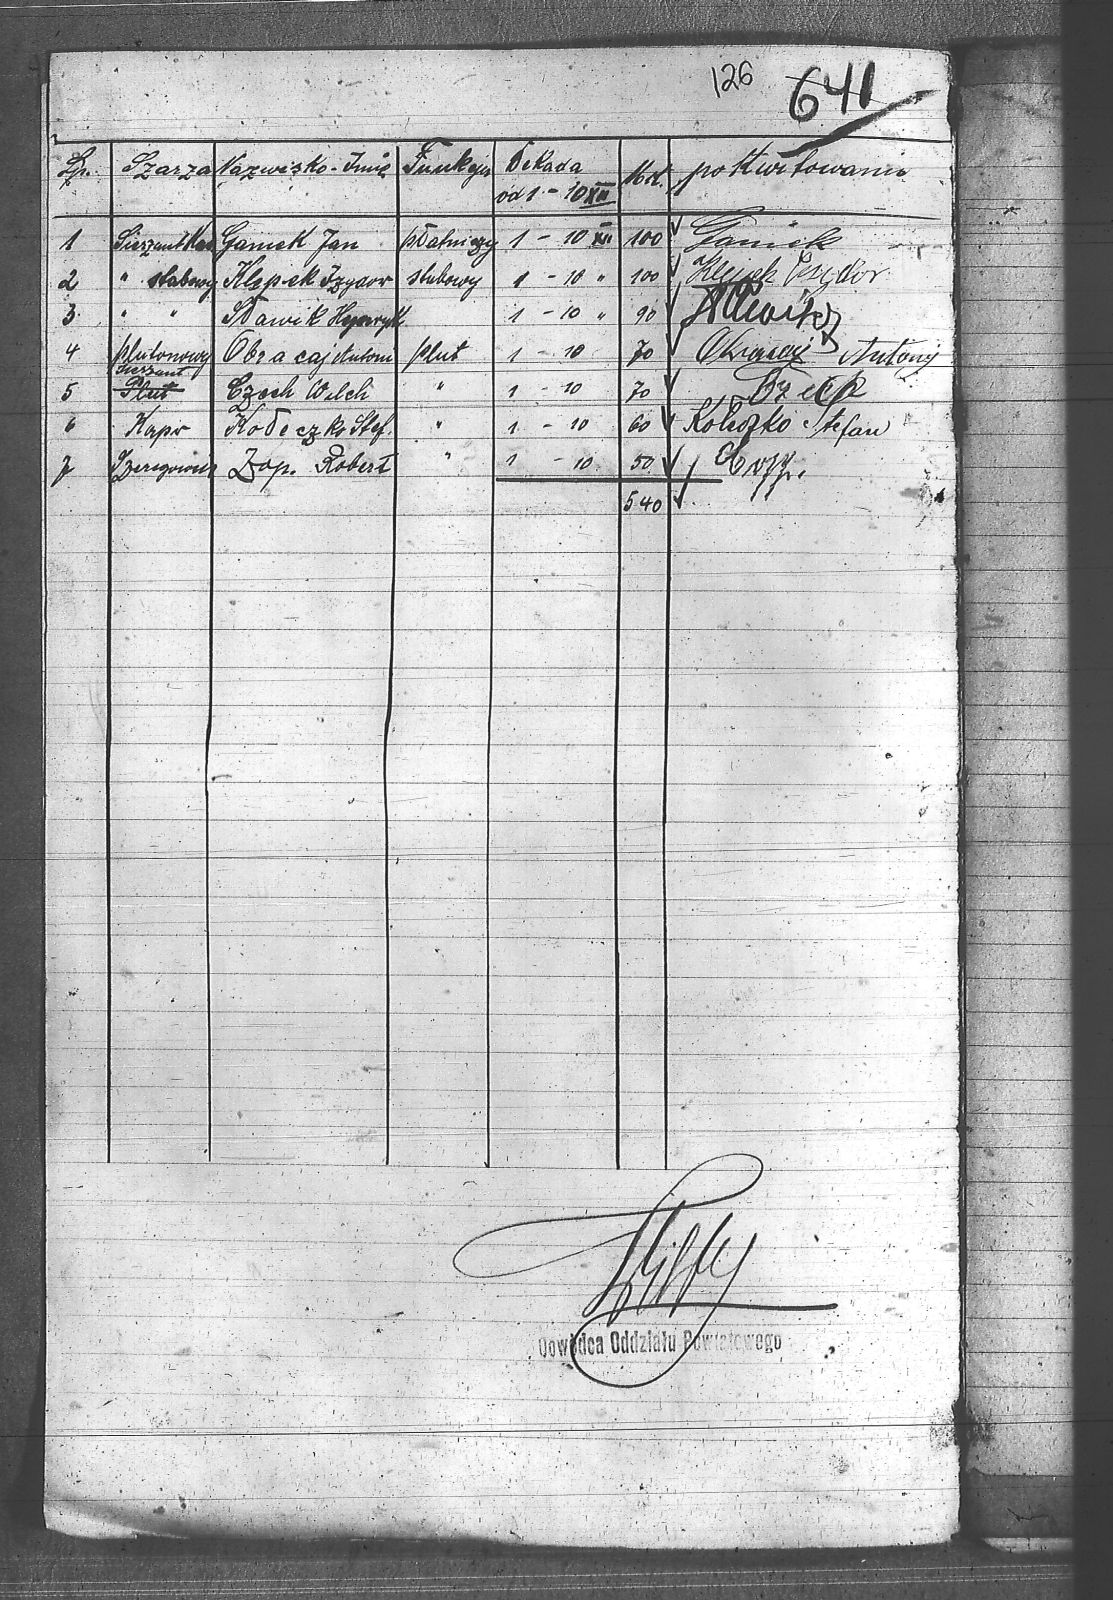 126
641
Lp. Szarża Nazwisko-Imię Funkcja Dekada Mk. pokwitowanie
od 1 - 10 XII
1 Sierżant Kas Gamek Jan płatniczy 1 - 10 XII. 100 Gamek
2 " stabowy Klepek Izydor stabowy 1 - 10 " 100 Klepek Izydor
3 " " Sławik Henryk 1 - 10 " 90
4 plutonowy Obracaj Antoni plut 1 - 10 70 Obracaj Antoni
sierżant
5 Plut Czech Wilch " 1 - 10 70 Czech
6 Kapr Kołeczko Stef. " 1 - 10 60 Kołeczko Stefan
7 Szeregowiec Zop. Robert " 1 - 10 50
540
Dowódca Oddziału Powiatowego